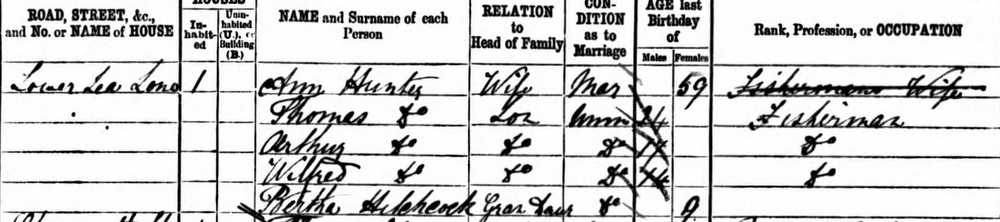 ROAD, STREET, &c., and No. or NAME of HOUSE | HOUSES In-habit-ed | Unin-habited (U.), or Building (B.) | NAME and Surname of each Person | RELATION to Head of Family | CON-DITION as to Marriage | AGE last Birthday of Males Females | Rank, Profession, or OCCUPATION
Lower Sea Lane 1 Ann Hunter Wife Mar 59 Fishermans Wife
Thomas Do Son Unm 24 Fisherman
Arthur Do Do Do Do
Wilfred Do Do Do 14 Do
Bertha Hitchcock Gran Daur Do 9